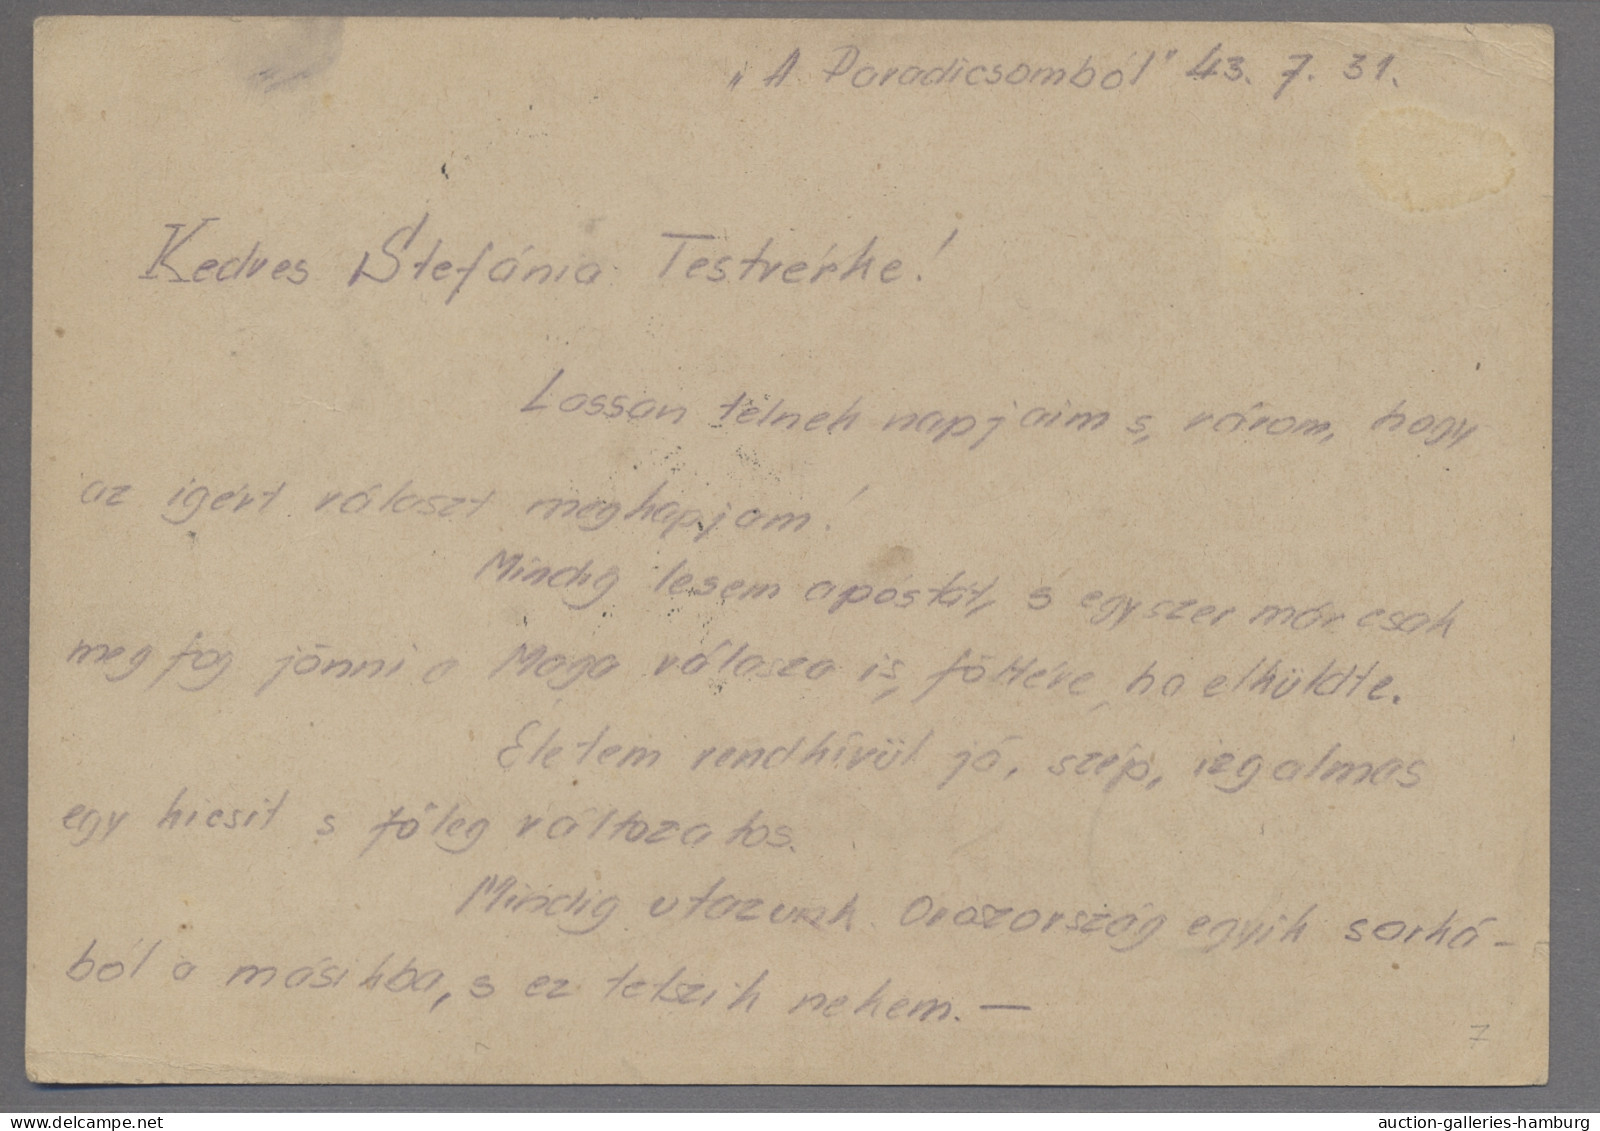 „A Paradicsomból" 43. 7. 31.
Kedves Stefánia Testvérke!
Lassan telnek napjaim s, várom, hogy
az igért választ meghapjam!
Mindig lesem a póstát, s egyszer már csak
meg fog jönni a Maga válasza is, föltéve, ha elküldte.
Életem rendkívül jó, szép, izgalmas
egy kicsit s főleg változatos.
Mindig utazunk Oroszország egyik sarká-
ból a másikba, s ez tetszik nekem. —
7
delcampe.net
auction-galleries-hamburg